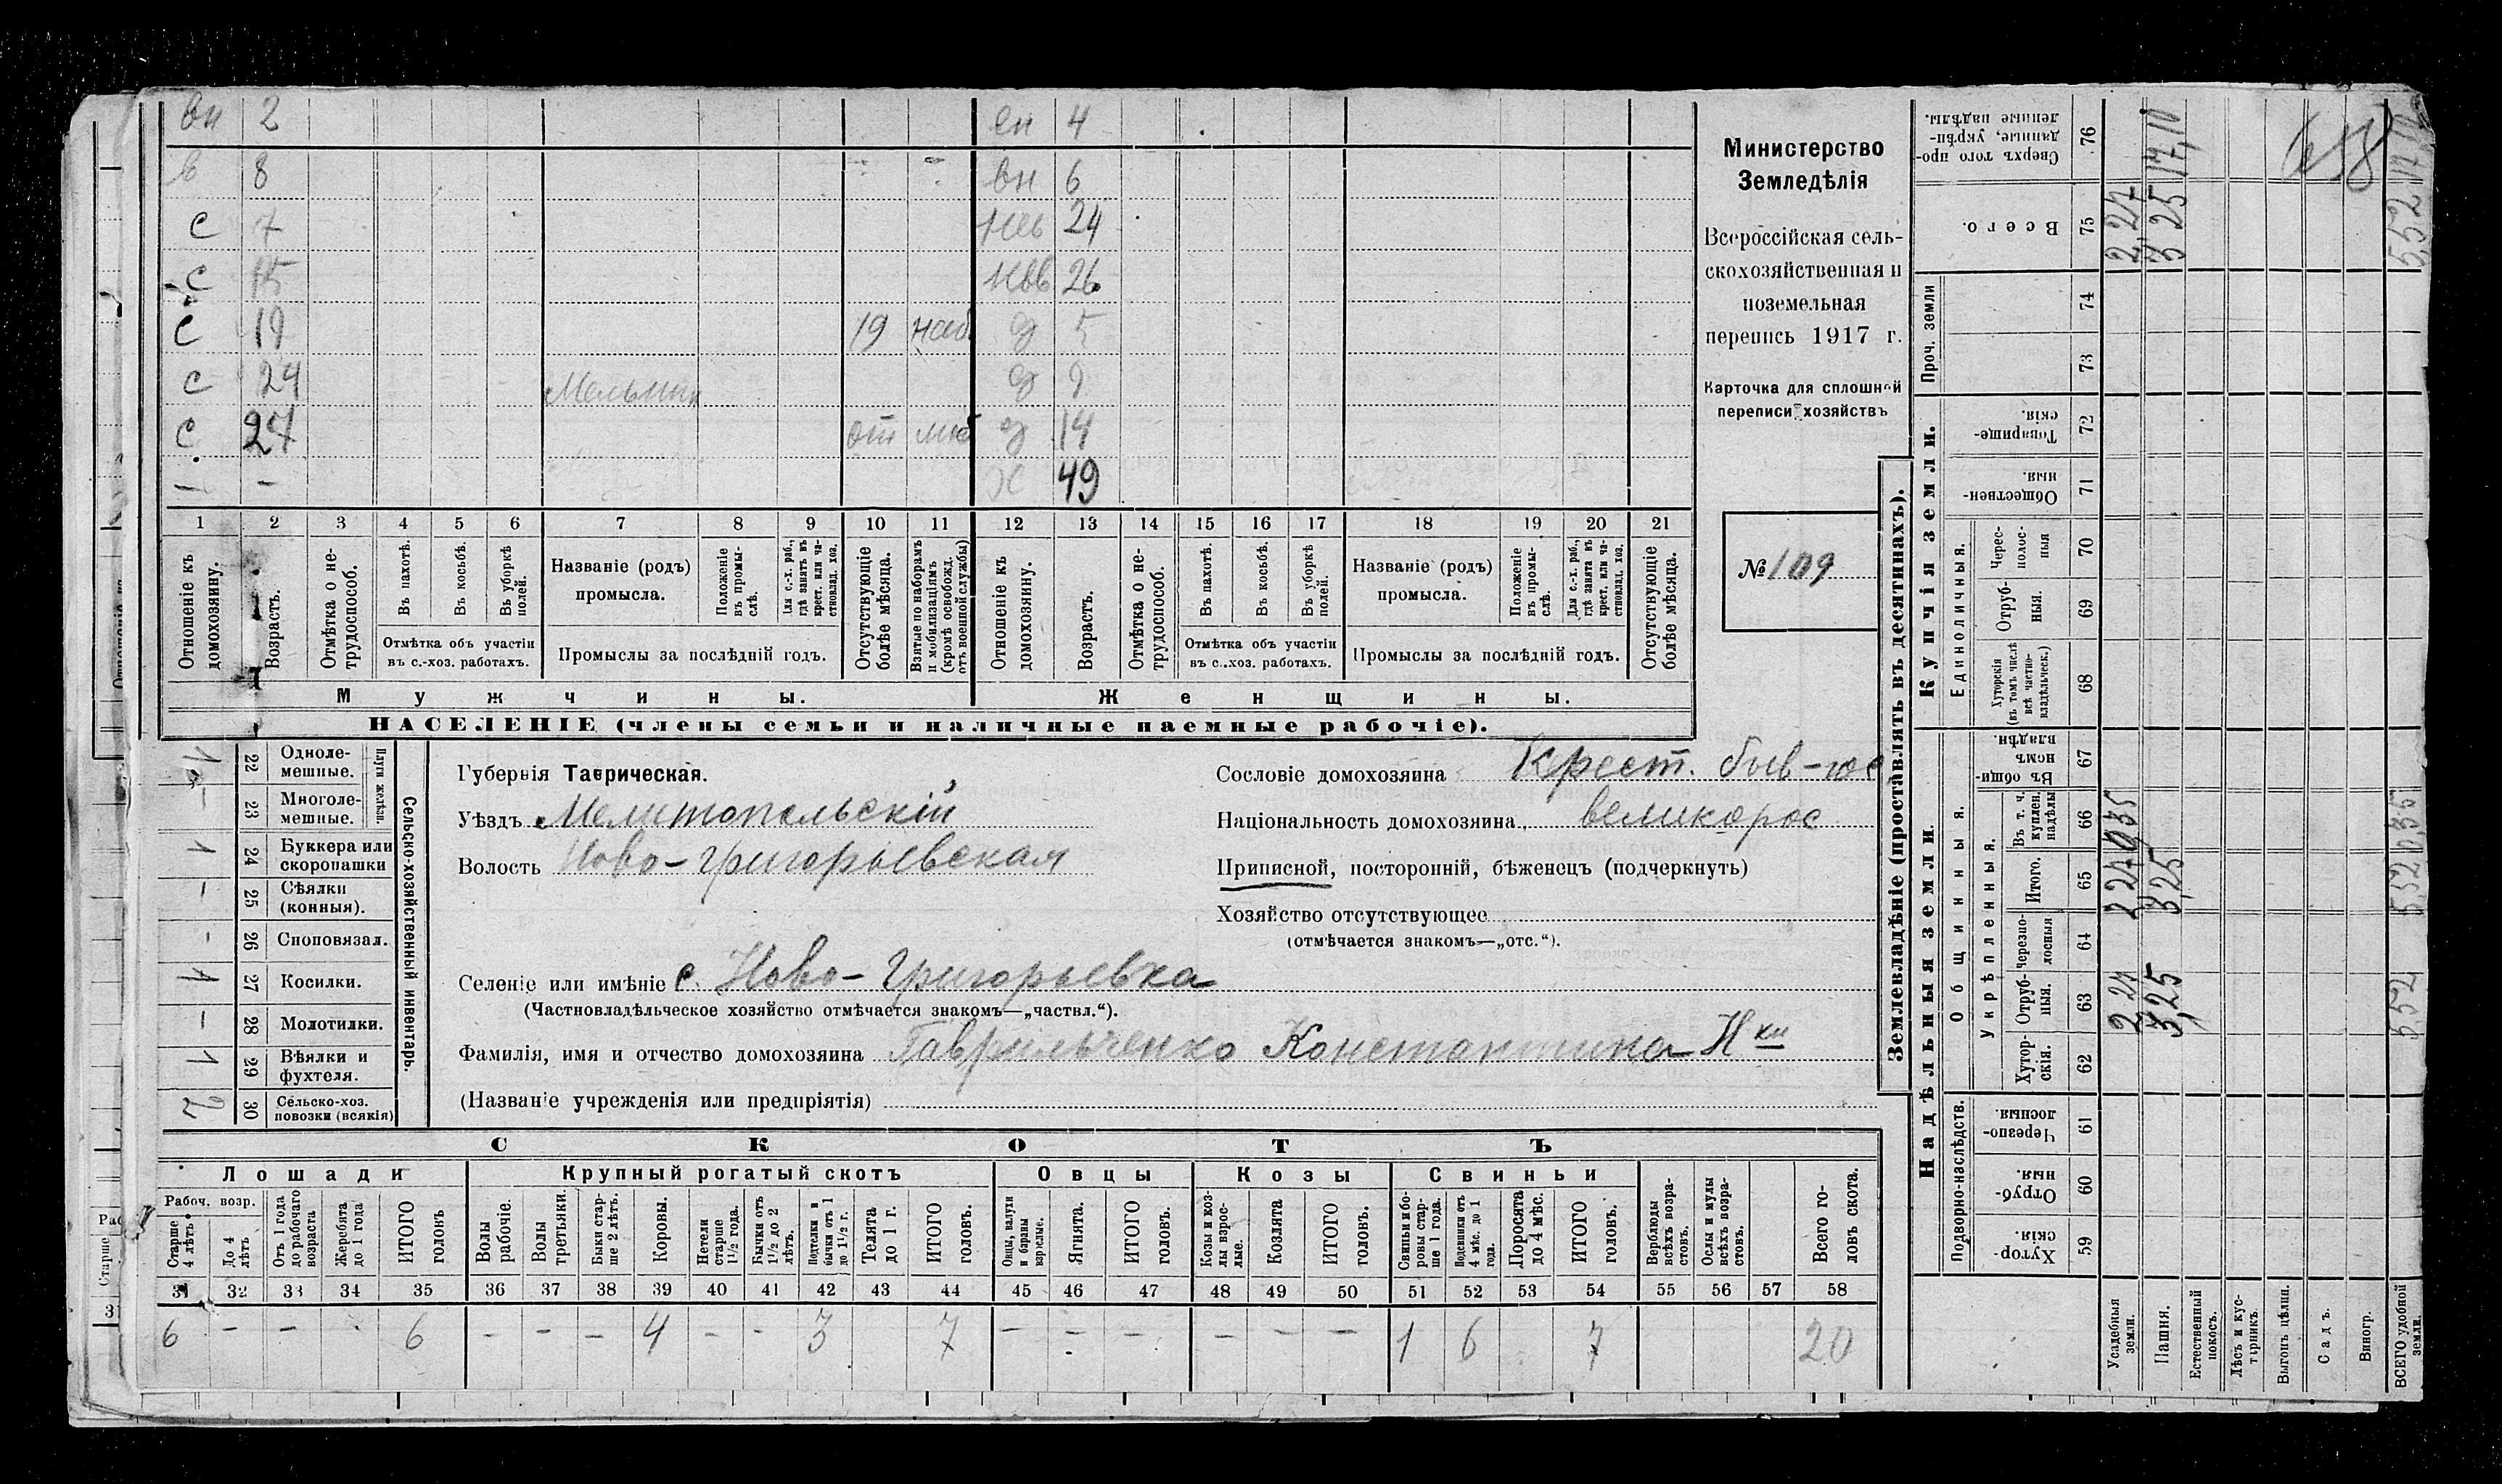 вн 2 ен 4
в 8 вн 6
с 7 нев 24
с 15 нвв 26
с 19 19 наб. д 5
с 24 Мельник д 9
с 27 от моб д 14
1 - х 49
1 2 3 4 5 6 7 8 9 10 11 12 13 14 15 16 17 18 19 20 21
Отношеніе къ домохозяину.
Возрастъ.
Отмѣтка о нетрудоспособ.
Въ пахотѣ.
Въ косьбѣ.
Въ уборкѣ полей.
Отмѣтка объ участіи въ с.-хоз. работахъ.
Названіе (родъ) промысла.
Положеніе въ промыслѣ.
Для с.-х. раб., гдѣ занятъ въ крест. или частновлад. хоз.
Промыслы за послѣдній годъ.
Отсутствующіе болѣе мѣсяца.
Взятые по наборамъ и мобилизаціямъ (кромѣ освобожд. отъ военной службы)
Отношеніе къ домохозяину.
Возрастъ.
Отмѣтка о нетрудоспособ.
Въ пахотѣ.
Въ косьбѣ.
Въ уборкѣ полей.
Отмѣтка объ участіи въ с..хоз. работахъ.
Названіе (родъ) промысла.
Положеніе въ промыслѣ.
Для с.-х. раб., гдѣ занята въ крест. или частновлад. хоз.
Промыслы за послѣдній годъ.
Отсутствующіе болѣе мѣсяца.
Мужчины. Женщины.
НАСЕЛЕНІЕ (члены семьи и наличные наемные рабочіе).
Министерство
Земледѣлія
Всероссійская сель-
скохозяйственная и
поземельная
перепись 1917 г.
Карточка для сплошной
переписи хозяйствъ
№ 109
Сельско-хозяйственный инвентарь.
Плуги желѣзн.
1 22 Одноле-
мешные.
- 23 Многоле-
мешные.
1 24 Буккера или
скоропашки
- 25 Сѣялки
(конныя).
- 26 Сноповязал.
1 27 Косилки.
- 28 Молотилки.
1 29 Вѣялки и
фухтеля.
2 30 Сельско-хоз.
повозки (всякія)
Губернія Таврическая.
Уѣздъ Мелитопольскій
Волость Ново-Григорьевская
Сословіе домохозяина Крест. быв-
Національность домохозяина великорос
Приписной, посторонній, бѣженец (подчеркнуть)
Хозяйство отсутствующее
(отмѣчается знакомъ—„отс.“).
Селеніе или имѣніе с. Ново-Григорьевка
(Частновладѣльческое хозяйство отмѣчается знакомъ—„частвл.“).
Фамилія, имя и отчество домохозяина Гаврильченко Константина Нки
(Названіе учрежденія или предпріятія)
СКОТЪ
Лошади Крупный рогатый скотъ Овцы Козы Свиньи
Рабоч. возр.
Старше 4 лѣтъ
До 4 лѣтъ
Отъ 1 года до рабочаго возраста
Жеребята до 1 года
ИТОГО головъ
Волы рабочіе.
Волы третьяки.
Быки старше 2 лѣтъ.
Коровы.
Нетели старше 1½ года.
Бычки отъ 1½ до 2 лѣтъ.
Подтелки и бычки отъ 1 до 1½ г.
Телята до 1 г.
ИТОГО головъ.
Овцы, валухи и бараны взрослые.
Ягнята.
ИТОГО головъ.
Козы и козлы взрослые.
Козлята
ИТОГО головъ.
Свиньи и боровы старше 1 года.
Подсвинки отъ 4 мѣс. до 1 года.
Поросята до 4 мѣс.
ИТОГО головъ.
Верблюды всѣхъ возрастовъ.
Ослы и мулы всѣхъ возрастовъ.
Всего головъ скота.
31 32 33 34 35 36 37 38 39 40 41 42 43 44 45 46 47 48 49 50 51 52 53 54 55 56 57 58
6 - - 6 - - - 4 - - 3 7 - - - - - - 1 6 7 20
Землевладѣніе (проставлять въ десятинахъ).
Надѣльныя земли. Купчія земли. Проч. земли
Подворно-наслѣдств.
Общинныя.
Укрѣпленныя.
Единоличныя.
59 Хуторскія.
60 Отрубныя.
61 Черезполосныя.
62 Хуторскія.
63 Отрубныя. 2,27 3,25 5,52
64 Черезполосныя
65 Итого. 2,27 3,25 5,52
66 Въ т. ч. куплен. надѣлы 0,35 0,35
67 Въ общиномъ владѣн.
68 Хуторскія (въ томъ числѣ всѣ частновладѣльческ.)
69 Отрубныя.
70 Чересполосныя
71 Общественныя.
72 Товарищескія.
73
74
75 Всего. 2,27 3 25 5,52
76 Сверхъ того проданные, укрѣпленные надѣлы. 17,10
658
Усадебныя земли.
Пашня.
Естественный покосъ.
Лѣсъ и кустарникъ.
Выгонъ цѣлин.
Садъ.
Виногр.
ВСЕГО удобной земли.